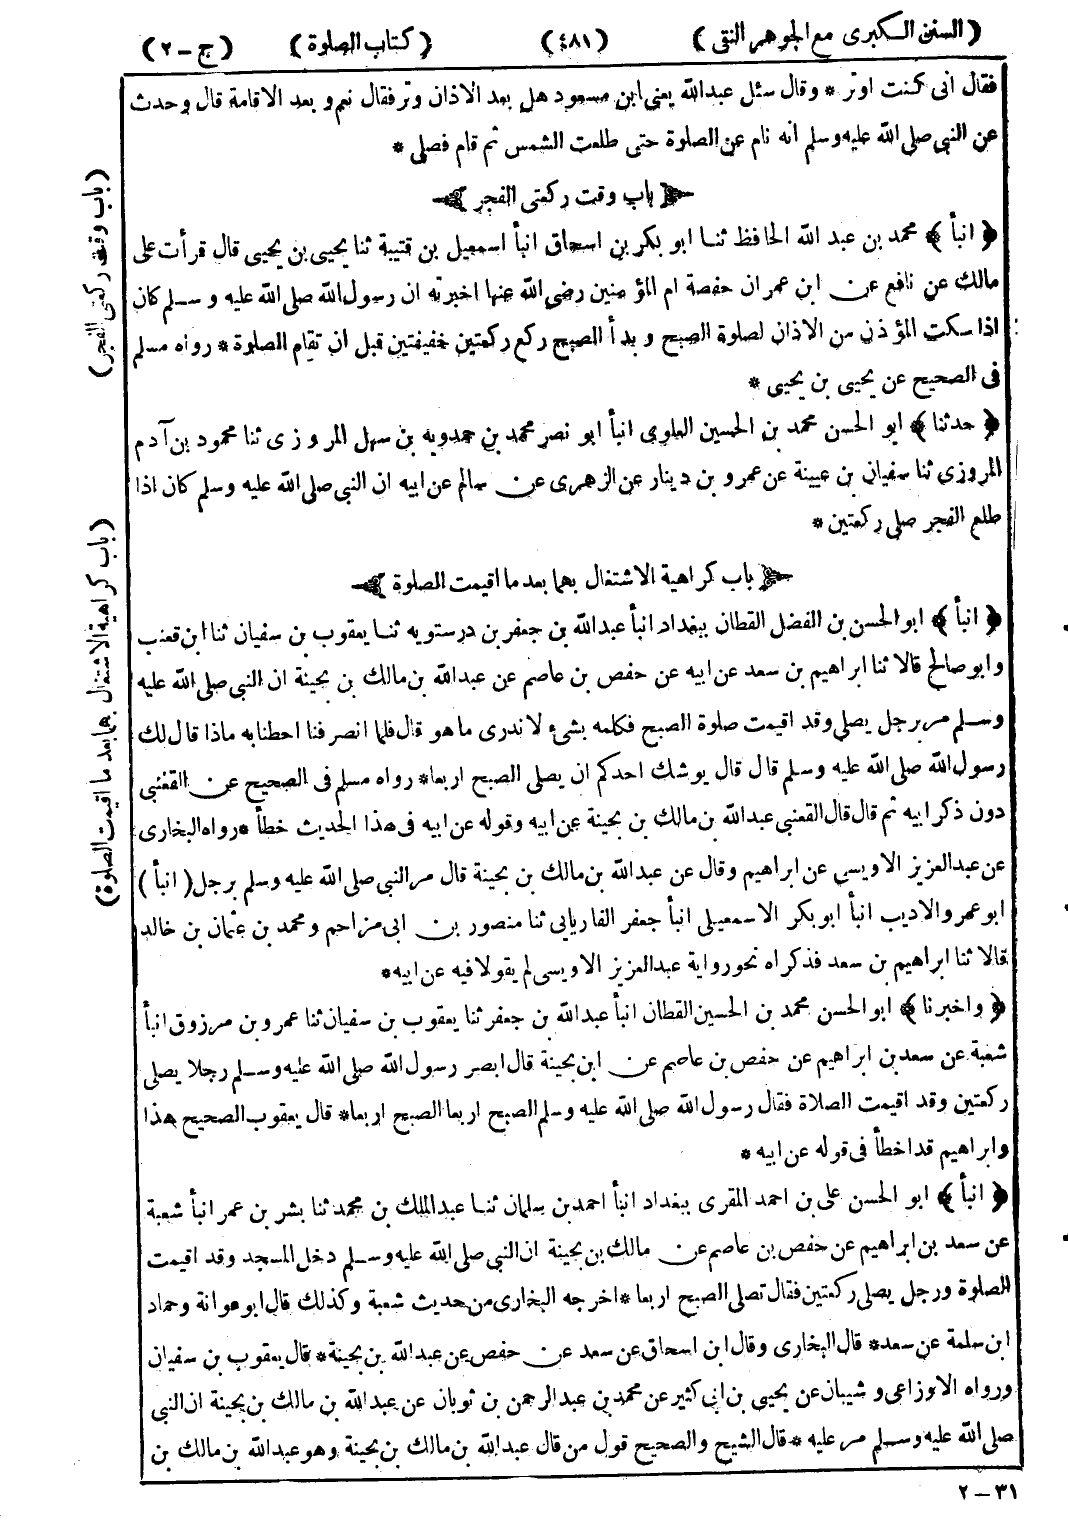 ( السنن الكبرى مع الجوهر النقى ) ( ٤٨١ ) ( كتاب الصلوة ) ( ج – ٢ )
فقال انى كنت اوتر * وقال سئل عبدالله يعنى ابن مسعود هل بعد الاذان وتر فقال نعم و بعد الاقامة قال وحدث
عن النبى صلى الله عليه وسلم انه نام عن الصلوة حتى طلعت الشمس ثم قام فصلى *
باب وقت ركعتى الفجر
﴿ انبأ ﴾ محمد بن عبد الله الحافظ ثنا ابو بكر بن اسحاق انبأ اسمعيل بن قتيبة ثنا يحيى بن يحيى قال قرأت على
مالك عن نافع عن ابن عمر ان حفصة ام المؤمنين رضى الله عنها اخبرته ان رسول الله صلى الله عليه وسلم كان
اذا سكت المؤذن من الاذان لصلوة الصبح و بدأ الصبح ركع ركعتين خفيفتين قبل ان تقام الصلوة * رواه مسلم
فى الصحيح عن يحيى بن يحيى *
﴿ حدثنا ﴾ ابو الحسن محمد بن الحسين العلوى انبأ ابو نصر محمد بن حمدويه بن سهل المروزى ثنا محمود بن آدم
المروزى ثنا سفيان بن عيينة عن عمرو بن دينار عن الزهرى عن سالم عن ابيه ان النبى صلى الله عليه وسلم كان اذا
طلع الفجر صلى ركعتين *
باب كراهية الاشتغال بهما بعد ما اقيمت الصلوة
﴿ انبأ ﴾ ابو الحسن بن الفضل القطان ببغداد انبأ عبدالله بن جعفر بن درستويه ثنا يعقوب بن سفيان ثنا ابن قعنب
وابو صالح قالا ثنا ابراهيم بن سعد عن ابيه عن حفص بن عاصم عن عبدالله بن مالك بن بحينة ان النبى صلى الله عليه
وسلم مر برجل يصلى وقد اقيمت صلوة الصبح فكلمه بشئ لا ندرى ما هو قال فلما انصرفنا احطنا به ماذا قال لك
رسول الله صلى الله عليه وسلم قال قال يوشك احدكم ان يصلى الصبح اربعا * رواه مسلم فى الصحيح عن القعنبى
دون ذكر ابيه ثم قال قال القعنبى عبدالله بن مالك بن بحينة عن ابيه وقوله عن ابيه فى هذا الحديث خطأ * رواه البخارى
عن عبدالعزيز الاويسى عن ابراهيم وقال عن عبدالله بن مالك بن بحينة قال مر النبى صلى الله عليه وسلم برجل ( انبأ )
ابو عمرو الاديب انبأ ابو بكر الاسمعيلى انبأ جعفر الفاريابى ثنا منصور بن ابى مزاحم ومحمد بن عثمان بن خالد
قالا ثنا ابراهيم بن سعد فذكراه نحو رواية عبدالعزيز الاويسى لم يقولا فيه عن ابيه *
﴿ واخبرنا ﴾ ابو الحسن محمد بن الحسين القطان انبأ عبدالله بن جعفر ثنا يعقوب بن سفيان ثنا عمرو بن مرزوق انبأ
شعبة عن سعد بن ابراهيم عن حفص بن عاصم عن ابن بحينة قال ابصر رسول الله صلى الله عليه وسلم رجلا يصلى
ركعتين وقد اقيمت الصلاة فقال رسول الله صلى الله عليه وسلم الصبح اربعا الصبح اربعا * قال يعقوب الصحيح هذا
وابراهيم قد اخطأ فى قوله عن ابيه *
﴿ انبأ ﴾ ابو الحسن على بن احمد المقرى ببغداد انبأ احمد بن سلمان ثنا عبدالملك بن محمد ثنا بشر بن عمر انبأ شعبة
عن سعد بن ابراهيم عن حفص بن عاصم عن مالك بن بحينة ان النبى صلى الله عليه وسلم دخل المسجد وقد اقيمت
الصلوة ورجل يصلى ركعتين فقال تصلى الصبح اربعا * اخرجه البخارى من حديث شعبة وكذلك قال ابو عوانة وحماد
ابن سلمة عن سعد * قال البخارى وقال ابن اسحاق عن سعد عن حفص عن عبدالله بن بحينة * قال يعقوب بن سفيان
ورواه الاوزاعى و شيبان عن يحيى بن ابى كثير عن محمد بن عبد الرحمن بن ثوبان عن عبدالله بن مالك بن بحينة ان النبى
صلى الله عليه وسلم مر عليه * قال الشيخ والصحيح قول من قال عبدالله بن مالك بن بحينة وهو عبدالله بن مالك بن
٣١ – ٢
( باب وقت ركعتى الفجر )
( باب كراهية الاشتغال بهما بعد ما اقيمت الصلوة )